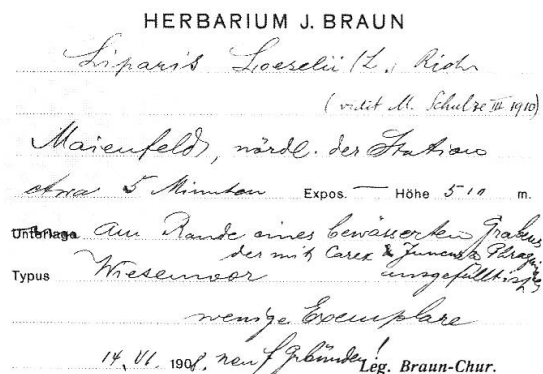 HERBARIUM J. BRAUN
Liparis Loeselii (L.) Rich
(vidit M. Schulze III 1910)
Maienfeld, nördl. der Station
etwa 5 Minuten Expos. — Höhe 510 m.
Unterlage am Rande eines bewässerten Grabens
der mit Carex & Juncus & Phragmites
Typus Wiesenmoor ausgefüllt ist,
wenige Exemplare
14. VI. 1908. neu f Grbünden! Leg. Braun-Chur.